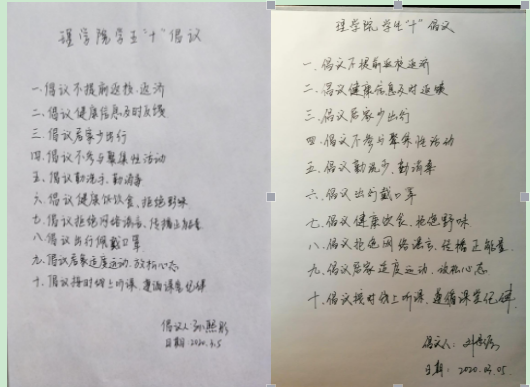 理学院学生"十"倡议
一.倡议不提前返校、返济
二.倡议健康信息及时反馈
三.倡议居家少出行
四.倡议不参与聚集性活动
五.倡议勤洗手,勤消毒
六.倡议健康饮食,拒绝野味
七.倡议拒绝网络谣言,传播正能量
八.倡议出行佩戴口罩
九.倡议居家适度运动、放松心态
十.倡议按时线上听课,遵循课堂纪律
倡议人:孙熙彤
日期 2020.3.5
理学院学生"十"倡议
一、倡议不提前返校返济
二、倡议健康信息及时反馈
三、倡议居家少出行
四、倡议不参与聚集性活动
五、倡议勤洗手、勤消毒
六、倡议出行戴口罩
七、倡议健康饮食、拒绝野味
八、倡议拒绝网络谣言,传播正能量.
九、倡议居家适度运动,放松心态
十、倡议按时线上听课,遵循课堂纪律.
倡议人:
日期:2020.03.05.